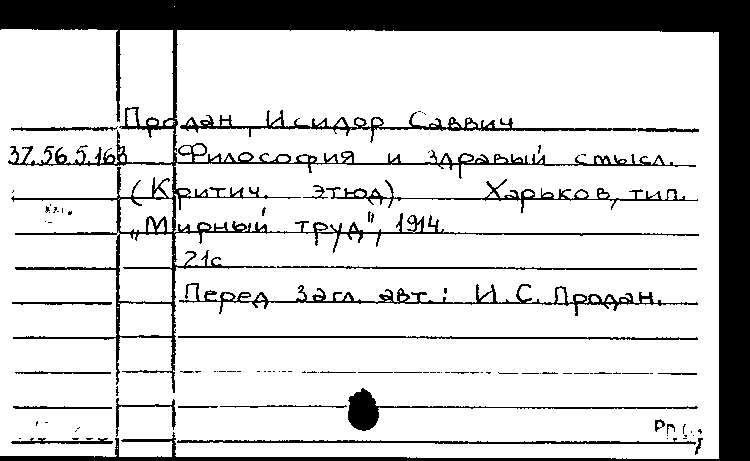 Продан, Исидор Саввич
37.56.5.168 Философия и здравый смысл.
(Критич. этюд). Харьков, тип.
„Мирный труд", 1914.
21с
Перед загл. авт.: И.С. Продан.